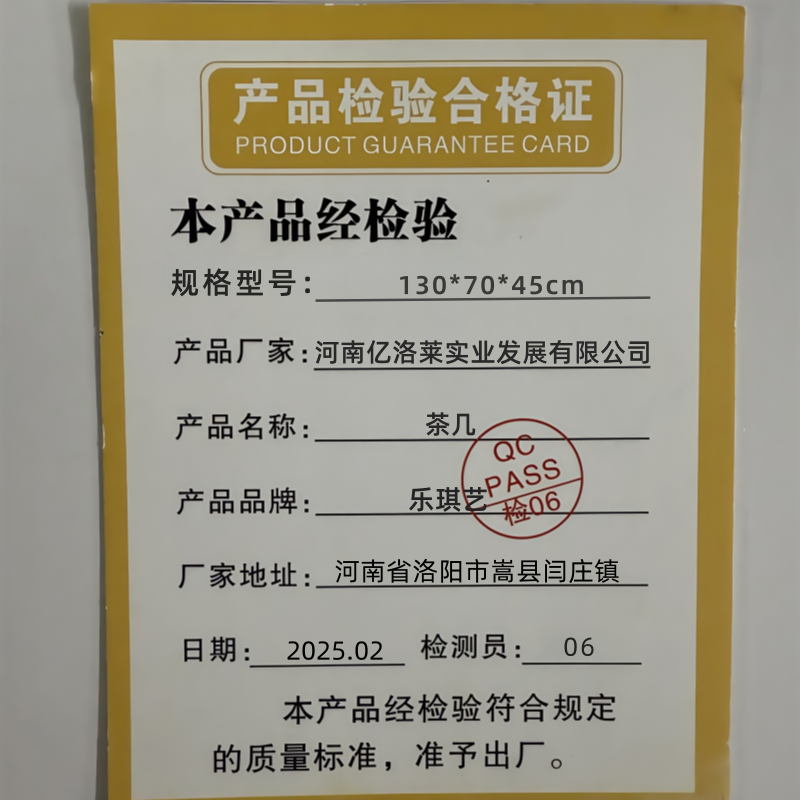 产品检验合格证
PRODUCT GUARANTEE CARD
本产品经检验
规格型号：130*70*45cm
产品厂家：河南亿洛莱实业发展有限公司
产品名称：茶几
产品品牌：乐琪艺
QC
PASS
检06
厂家地址：河南省洛阳市嵩县闫庄镇
日期：2025.02 检测员：06
本产品经检验符合规定
的质量标准，准予出厂。